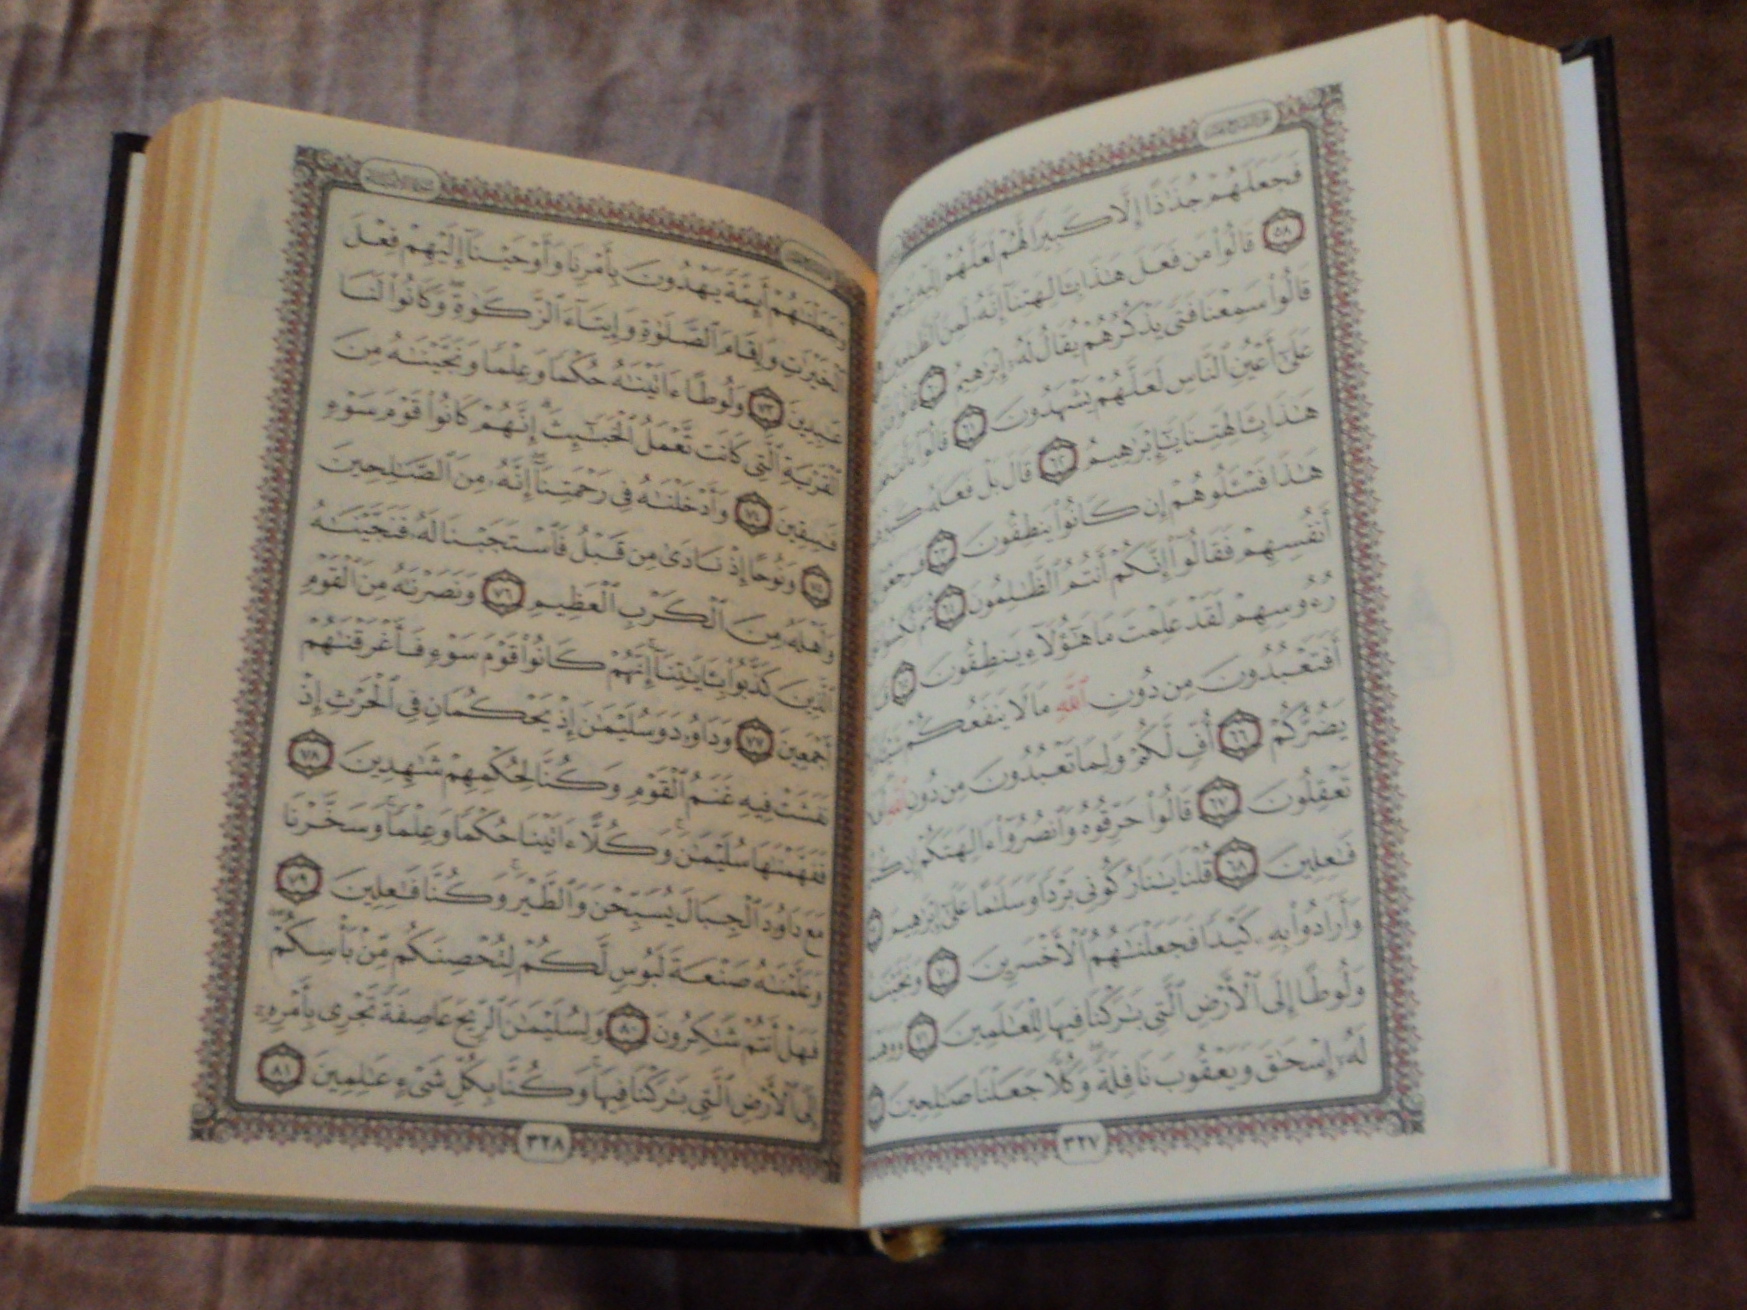 فَجَعَلَهُمْ جُذَٰذًا إِلَّا كَبِيرًا لَّهُمْ لَعَلَّهُمْ إِلَيْهِ يَرْجِعُونَ
٥٨ قَالُوا۟ مَن فَعَلَ هَٰذَا بِـَٔالِهَتِنَآ إِنَّهُۥ لَمِنَ ٱلظَّٰلِمِينَ
قَالُوا۟ سَمِعْنَا فَتًى يَذْكُرُهُمْ يُقَالُ لَهُۥٓ إِبْرَٰهِيمُ ٦٠ قَالُوا۟ فَأْتُوا۟
عَلَىٰٓ أَعْيُنِ ٱلنَّاسِ لَعَلَّهُمْ يَشْهَدُونَ ٦١ قَالُوٓا۟ ءَأَنتَ فَعَلْتَ
هَٰذَا بِـَٔالِهَتِنَا يَٰٓإِبْرَٰهِيمُ ٦٢ قَالَ بَلْ فَعَلَهُۥ كَبِيرُهُمْ
هَٰذَا فَسْـَٔلُوهُمْ إِن كَانُوا۟ يَنطِقُونَ ٦٣ فَرَجَعُوٓا۟
أَنفُسِهِمْ فَقَالُوٓا۟ إِنَّكُمْ أَنتُمُ ٱلظَّٰلِمُونَ ٦٤ ثُمَّ نُكِسُوا۟
رُءُوسِهِمْ لَقَدْ عَلِمْتَ مَا هَٰٓؤُلَآءِ يَنطِقُونَ ٦٥
أَفَتَعْبُدُونَ مِن دُونِ ٱللَّهِ مَا لَا يَنفَعُكُمْ شَيْـًٔا
يَضُرُّكُمْ ٦٦ أُفٍّ لَّكُمْ وَلِمَا تَعْبُدُونَ مِن دُونِ ٱللَّهِ أَفَلَا
تَعْقِلُونَ ٦٧ قَالُوا۟ حَرِّقُوهُ وَٱنصُرُوٓا۟ ءَالِهَتَكُمْ إِن كُنتُمْ
فَٰعِلِينَ ٦٨ قُلْنَا يَٰنَارُ كُونِى بَرْدًا وَسَلَٰمًا عَلَىٰٓ إِبْرَٰهِيمَ
وَأَرَادُوا۟ بِهِۦ كَيْدًا فَجَعَلْنَٰهُمُ ٱلْأَخْسَرِينَ ٧٠ وَنَجَّيْنَٰهُ
وَلُوطًا إِلَى ٱلْأَرْضِ ٱلَّتِى بَٰرَكْنَا فِيهَا لِلْعَٰلَمِينَ ٧١ وَوَهَبْنَا
لَهُۥٓ إِسْحَٰقَ وَيَعْقُوبَ نَافِلَةً ۖ وَكُلًّا جَعَلْنَا صَٰلِحِينَ
٣٢٧
وَجَعَلْنَٰهُمْ أَئِمَّةً يَهْدُونَ بِأَمْرِنَا وَأَوْحَيْنَآ إِلَيْهِمْ فِعْلَ
ٱلْخَيْرَٰتِ وَإِقَامَ ٱلصَّلَوٰةِ وَإِيتَآءَ ٱلزَّكَوٰةِ ۖ وَكَانُوا۟ لَنَا
عَٰبِدِينَ ٧٣ وَلُوطًا ءَاتَيْنَٰهُ حُكْمًا وَعِلْمًا وَنَجَّيْنَٰهُ مِنَ
ٱلْقَرْيَةِ ٱلَّتِى كَانَت تَّعْمَلُ ٱلْخَبَٰٓئِثَ ۗ إِنَّهُمْ كَانُوا۟ قَوْمَ سَوْءٍ
فَٰسِقِينَ ٧٤ وَأَدْخَلْنَٰهُ فِى رَحْمَتِنَآ ۖ إِنَّهُۥ مِنَ ٱلصَّٰلِحِينَ
٧٥ وَنُوحًا إِذْ نَادَىٰ مِن قَبْلُ فَٱسْتَجَبْنَا لَهُۥ فَنَجَّيْنَٰهُ
وَأَهْلَهُۥ مِنَ ٱلْكَرْبِ ٱلْعَظِيمِ ٧٦ وَنَصَرْنَٰهُ مِنَ ٱلْقَوْمِ
ٱلَّذِينَ كَذَّبُوا۟ بِـَٔايَٰتِنَآ ۚ إِنَّهُمْ كَانُوا۟ قَوْمَ سَوْءٍ فَأَغْرَقْنَٰهُمْ
أَجْمَعِينَ ٧٧ وَدَاوُۥدَ وَسُلَيْمَٰنَ إِذْ يَحْكُمَانِ فِى ٱلْحَرْثِ إِذْ
نَفَشَتْ فِيهِ غَنَمُ ٱلْقَوْمِ وَكُنَّا لِحُكْمِهِمْ شَٰهِدِينَ ٧٨
فَفَهَّمْنَٰهَا سُلَيْمَٰنَ ۚ وَكُلًّا ءَاتَيْنَا حُكْمًا وَعِلْمًا ۚ وَسَخَّرْنَا
مَعَ دَاوُۥدَ ٱلْجِبَالَ يُسَبِّحْنَ وَٱلطَّيْرَ ۚ وَكُنَّا فَٰعِلِينَ ٧٩
وَعَلَّمْنَٰهُ صَنْعَةَ لَبُوسٍ لَّكُمْ لِتُحْصِنَكُم مِّنۢ بَأْسِكُمْ ۖ
فَهَلْ أَنتُمْ شَٰكِرُونَ ٨٠ وَلِسُلَيْمَٰنَ ٱلرِّيحَ عَاصِفَةً تَجْرِى بِأَمْرِهِۦٓ
إِلَى ٱلْأَرْضِ ٱلَّتِى بَٰرَكْنَا فِيهَا ۚ وَكُنَّا بِكُلِّ شَىْءٍ عَٰلِمِينَ ٨١
٣٢٨